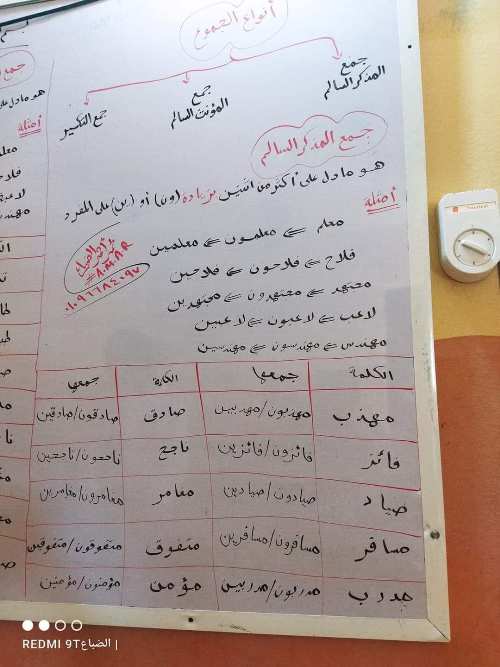 أنواع الجموع
جمع المذكر السالم
جمع المؤنث السالم
جمع التكسير
جمع المذكر السالم
هو ما دل على أكثر من اثنين بزيادة (ون) أو (ين) على المفرد
أمثلة
معلم ⇐ معلمون ⇐ معلمين
فلاح ⇐ فلاحون ⇐ فلاحين
مجتهد ⇐ مجتهدون ⇐ مجتهدين
لاعب ⇐ لاعبون ⇐ لاعبين
مهندس ⇐ مهندسون ⇐ مهندسين
الكلمة جمعها الكلمة جمعها
مهذب مهذبون/مهذبين صادق صادقون/صادقين
فائز فائزون/فائزين ناجح ناجحون/ناجحين
صياد صيادون/صيادين مغامر مغامرون/مغامرين
مسافر مسافرون/مسافرين متفوق متفوقون/متفوقين
مدرب مدربون/مدربين مؤمن مؤمنون/مؤمنين
REDMI 9T الضباع |